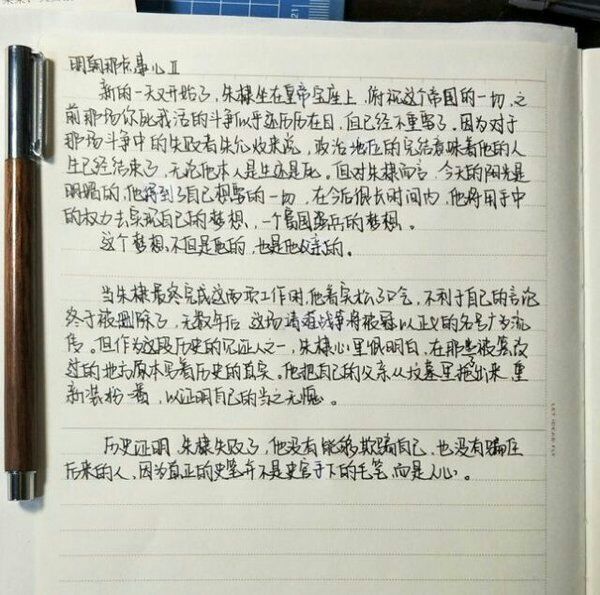 明朝那些事儿 II
新的一天又开始了，朱棣坐在皇帝宝座上，俯视这个帝国的一切，之
前那场你死我活的斗争似乎还历历在目，但已经不重要了。因为对于
那场斗争中的失败者朱允炆来说，政治地位的完结意味着他的人
生已经结束了，无论他本人是生还是死。但对朱棣而言，今天的阳光是
明媚的，他得到了自己想要的一切，在今后很长时间内，他将用手中
的权力去实现自己的梦想，一个富国强兵的梦想。
这个梦想不但是他的，也是他父亲的。
当朱棣最终完成这两项工作时，他着实松了口气，不利于自己的言论
终于被删除了，无数年后 这场靖难战争将被冠以正义的名号广为流
传。但作为这段历史的见证人之一，朱棣心里很明白，在那些被篡改
过的地方原本写着历史的真实。他把自己的父亲从坟墓里拖出来 重
新装扮一番，以证明自己的当之无愧。
历史证明，朱棣失败了，他没有能够欺骗自己，也没有骗住
后来的人，因为真正的史笔并不是史官手下的毛笔，而是人心。